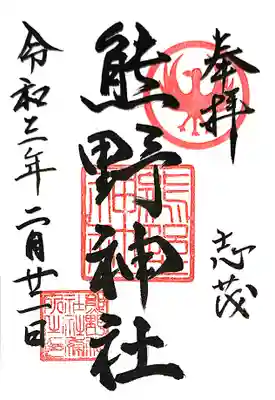 奉拝
志茂
熊野神社
令和三年二月廿一日